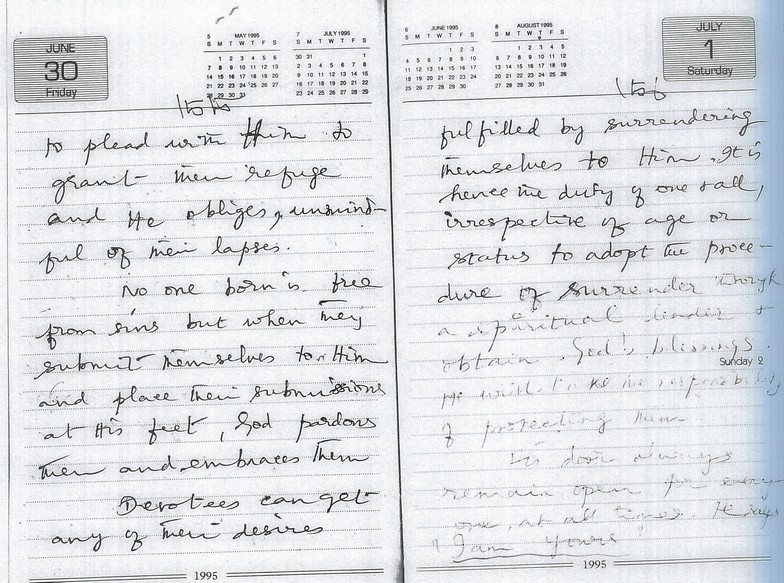 JUNE
30
Friday
5 MAY 1995
S M T W T F S
1 2 3 4 5 6
7 8 9 10 11 12 13
14 15 16 17 18 19 20
21 22 23 24 25 26 27
28 29 30 31
7 JULY 1995
S M T W T F S
30 31 1
2 3 4 5 6 7 8
9 10 11 12 13 14 15
16 17 18 19 20 21 22
23 24 25 26 27 28 29
to plead with Him to
grant them refuge
and He obliges, unmind-
ful of their lapses.
No one born is free
from sins but when they
submit themselves to Him
and place their submissions
at His feet, God pardons
them and embraces them
Devotees can get
any of their desires
1995
6 JUNE 1995
S M T W T F S
1 2 3
4 5 6 7 8 9 10
11 12 13 14 15 16 17
18 19 20 21 22 23 24
25 26 27 28 29 30
8 AUGUST 1995
S M T W T F S
1 2 3 4 5
6 7 8 9 10 11 12
13 14 15 16 17 18 19
20 21 22 23 24 25 26
27 28 29 30 31
JULY
1
Saturday
fulfilled by surrendering
themselves to Him. It is
hence the duty of one & all,
irrespective of age or
status to adopt the proce-
dure of surrender through
a spiritual leader &
obtain God's blessings.
Sunday 2
He will take the responsibility
of protecting them
His door always
remain open for every-
one, at all times. He says
"I am yours"
1995